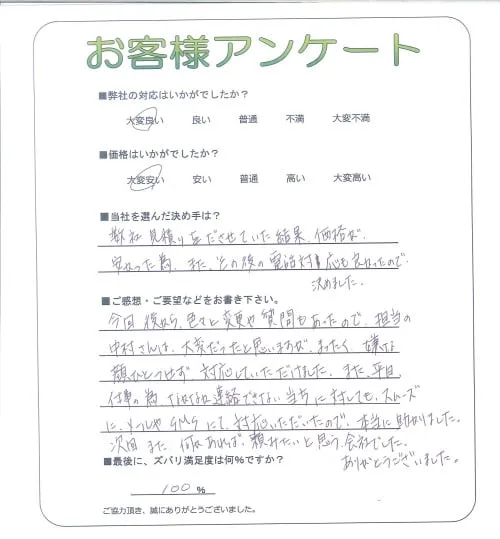 お客様アンケート
■弊社の対応はいかがでしたか？
大変良い 良い 普通 不満 大変不満
■価格はいかがでしたか？
大変安い 安い 普通 高い 大変高い
■当社を選んだ決め手は？
数社見積り立ださせていた結果、価格が、
安かった為、また、その後の電話対応も良かったので、
決めました。
■ご感想・ご要望などをお書き下さい。
今回後から、色々と変更や質問もあったので、担当の
中村さんは、大変だったと思いますが、まったく、嫌な
顔ひとつせず対応していただけました。また、平日
仕事の為なかなか連絡できない当方に対しても、スムーズ
に、メールやSMSにて、対応いただいたので、本当に助かりました。
次回また何かあれば、頼みたいと思う会社でした。
ありがとうございました。
■最後に、ズバリ満足度は何％ですか？
100 %
ご協力頂き、誠にありがとうございました。